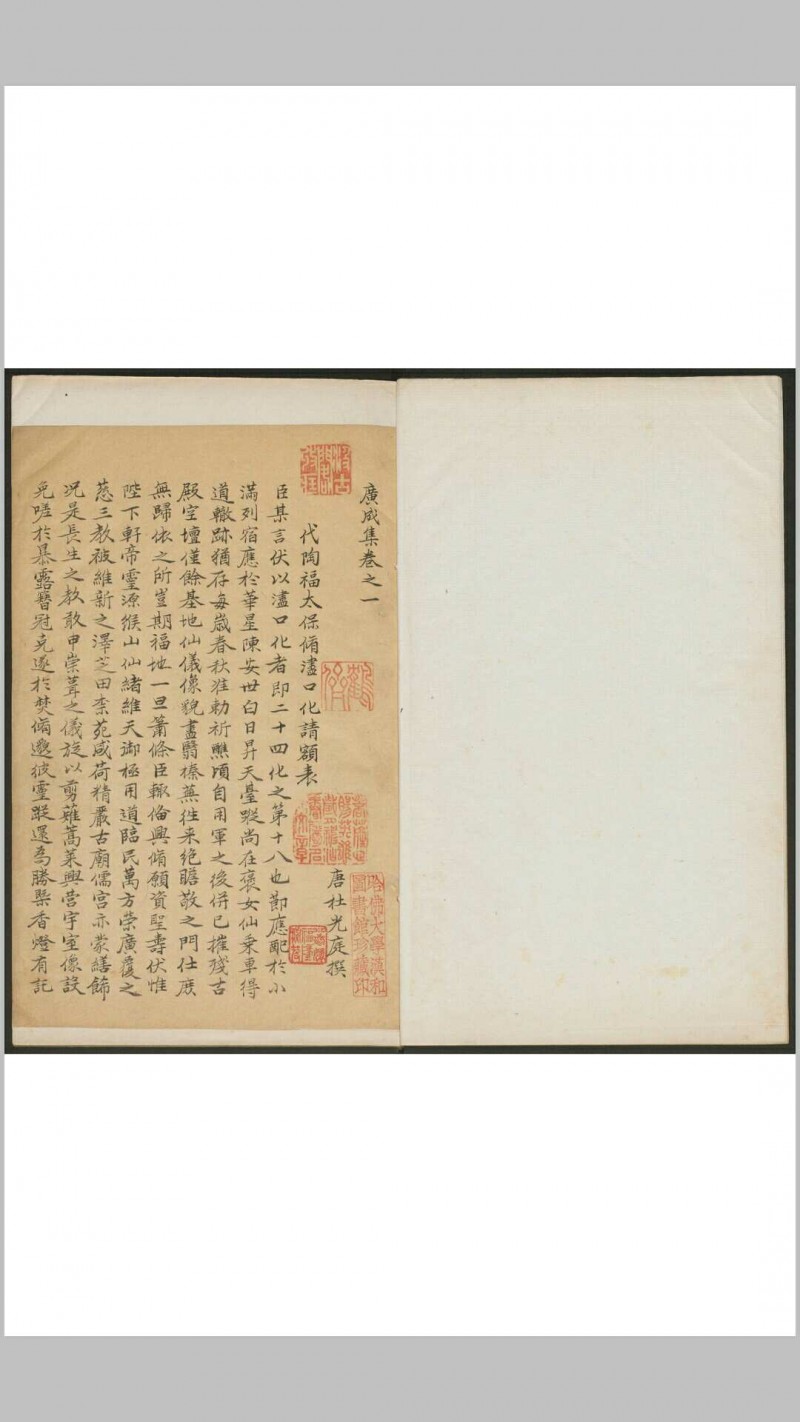 廣成集卷之一
唐杜光庭撰
代陶福太保脩濜口化請額表
臣某言伏以濜口化者即二十四化之第十八也節應配於小
滿列宿應於華星陳安世白日昇天臺蹤尚在褒女仙乗車得
道轍跡猶存每歳春秋准勅祈醮頃自用軍之後併已摧殘古
殿空壇僅餘基地仙儀像貌盡翳榛蕪徃来絶瞻敬之門仕庻
無歸依之所豈期福地一旦蕭條臣輙倫興脩願資聖壽伏惟
陛下軒帝靈源緱山仙緒維天御極用道臨民萬方榮廣覆之
慈三教被維新之澤芝田柰苑咸荷精嚴古廟儒宫亦蒙繕飾
况是長生之教敢申崇葺之儀旋以剪薙蒿莱興营宇室像設
免嗟於暴露簪冠克遂於焚脩邈彼靈蹤還為勝槩香燈有記
哈佛大學漢和
圖書館珍藏印